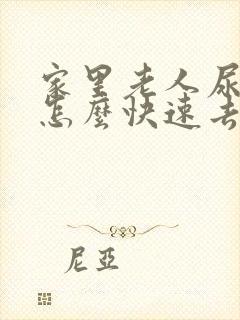 家里老人尿
怎麼快速去
尼亞